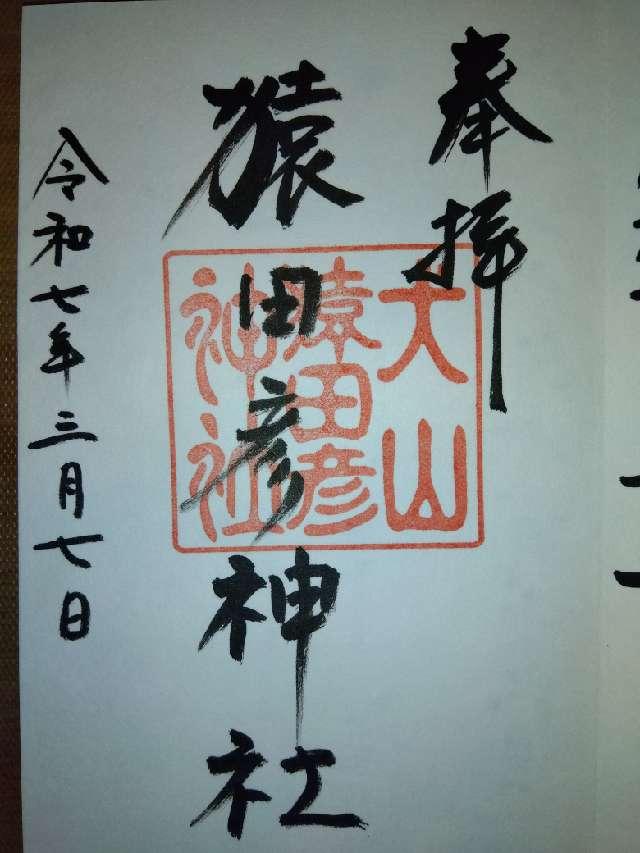 奉拝
猿田彦神社
令和七年三月七日
大山
猿田彦
神社